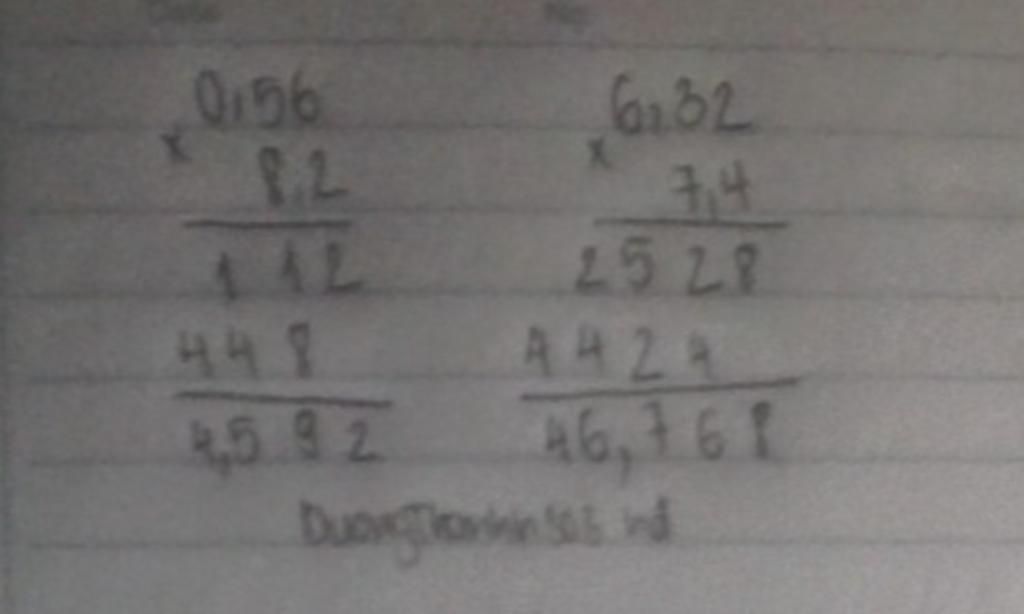 0,56 6,32
x x
8,2 7,4
1 1 2 2 5 2 8
4 4 8 4 4 2 4
4,5 9 2 46,7 6 8